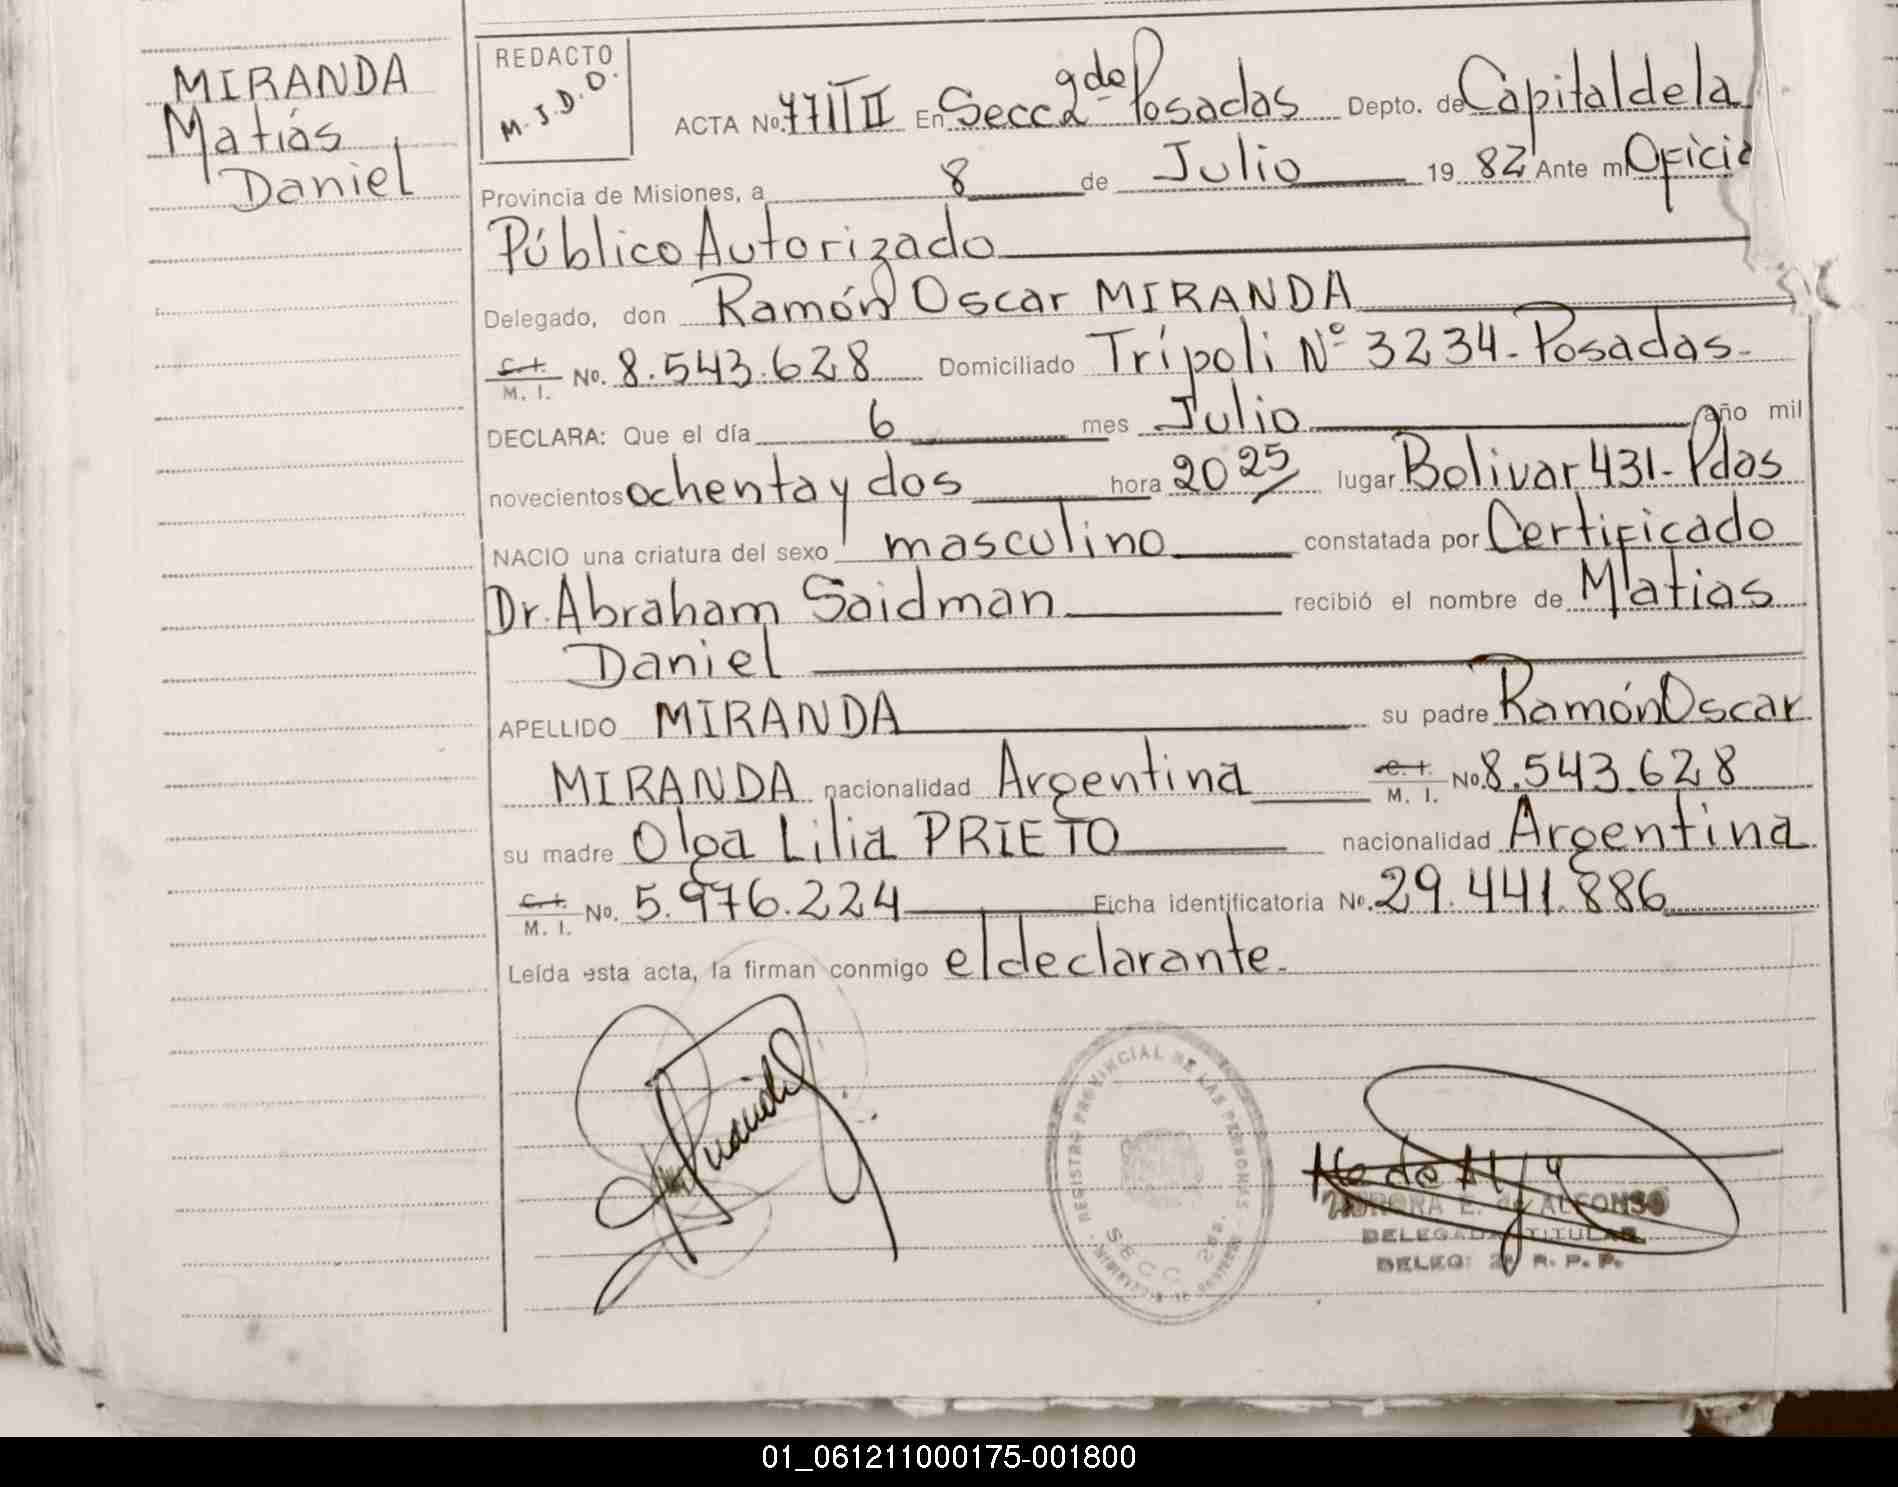 MIRANDA
Matías
Daniel
REDACTO
M.J.D.O.
ACTA No. 771 TII En Secc 2ᵍᵈᵃ Posadas Depto. de Capital de la
Provincia de Misiones, a 8 de Julio 1982 Ante mi Oficia
Público Autorizado
Delegado, don Ramón Oscar MIRANDA
C.I. M. I. No. 8.543.628 Domiciliado Trípoli Nº 3234 - Posadas -
DECLARA: Que el día 6 mes Julio año mil
novecientos ochenta y dos hora 20 25 lugar Bolivar 431 - Pdas
NACIO una criatura del sexo masculino constatada por Certificado
Dr. Abraham Saidman recibió el nombre de Matias
Daniel
APELLIDO MIRANDA su padre Ramón Oscar
MIRANDA nacionalidad Argentina C.I. M. I. No 8.543.628
su madre Olga Lilia PRIETO nacionalidad Argentina
C.I. M. I. No. 5.976.224 Ficha identificatoria No. 29.441.886
Leída esta acta, la firman conmigo el declarante.
REGISTRO PROVINCIAL DE LAS PERSONAS
SECC 2da.
AURORA E. de ALFONSO
DELEGADA TITULAR
DELEG: 2ª R. P. P.
01_061211000175-001800